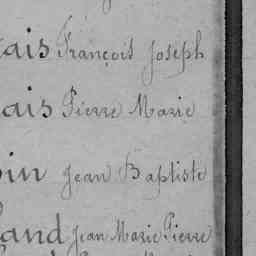 ais François Joseph
ais Pierre Marie
in Jean Baptiste
and Jean Marie Pierre